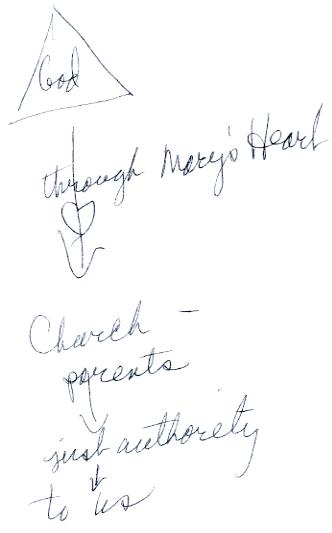 God
through Mary's Heart
Church -
parents
just authoriety
to us